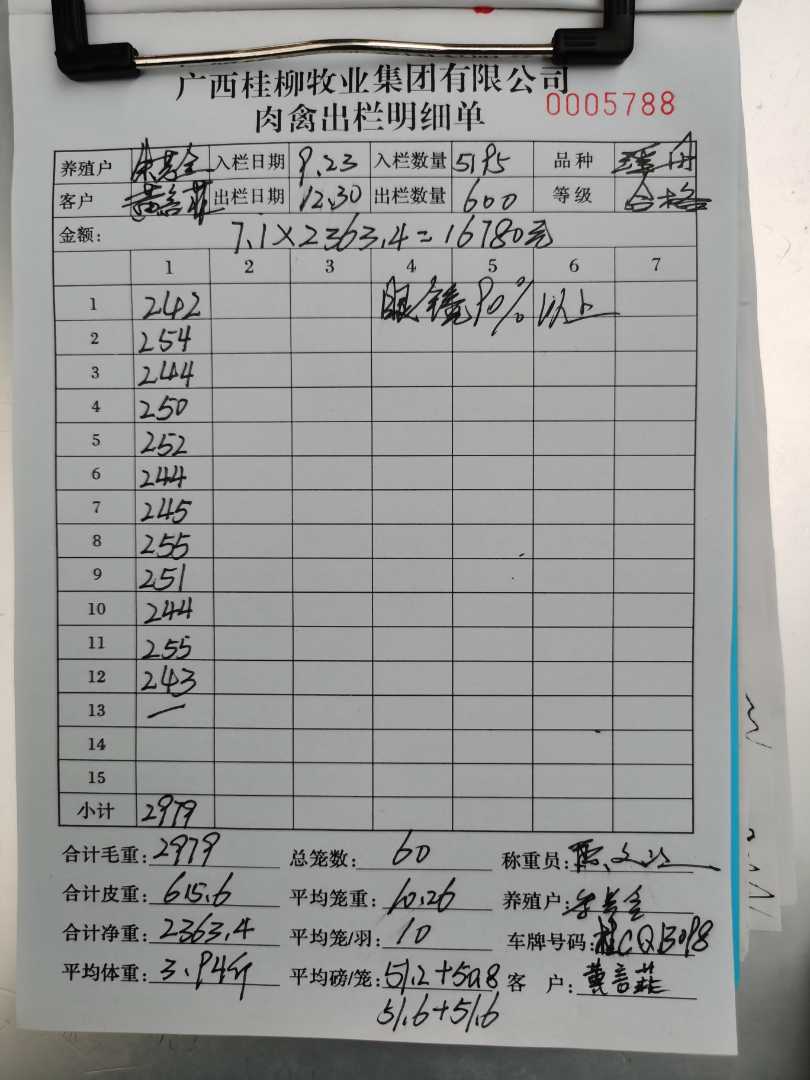 广西桂柳牧业集团有限公司
肉禽出栏明细单 0005788
养殖户 入栏日期 9.23 入栏数量 5195 品种 瑶丹
客户 黄言菲 出栏日期 12.30 出栏数量 600 等级 合格
金额: 7.1×2363.4=16780元
1 2 3 4 5 6 7
1 242 眼镜90%以上
2 254
3 244
4 250
5 252
6 244
7 245
8 255
9 251
10 244
11 255
12 243
13 一
14
15
小计 2979
合计毛重: 2979 总笼数: 60 称重员:
合计皮重: 615.6 平均笼重: 10.26 养殖户:
合计净重: 2363.4 平均笼/羽: 10 车牌号码: 桂CQB098
平均体重: 3.94斤 平均磅/笼: 51.2+50.8 客 户: 黄言菲
51.6+51.6